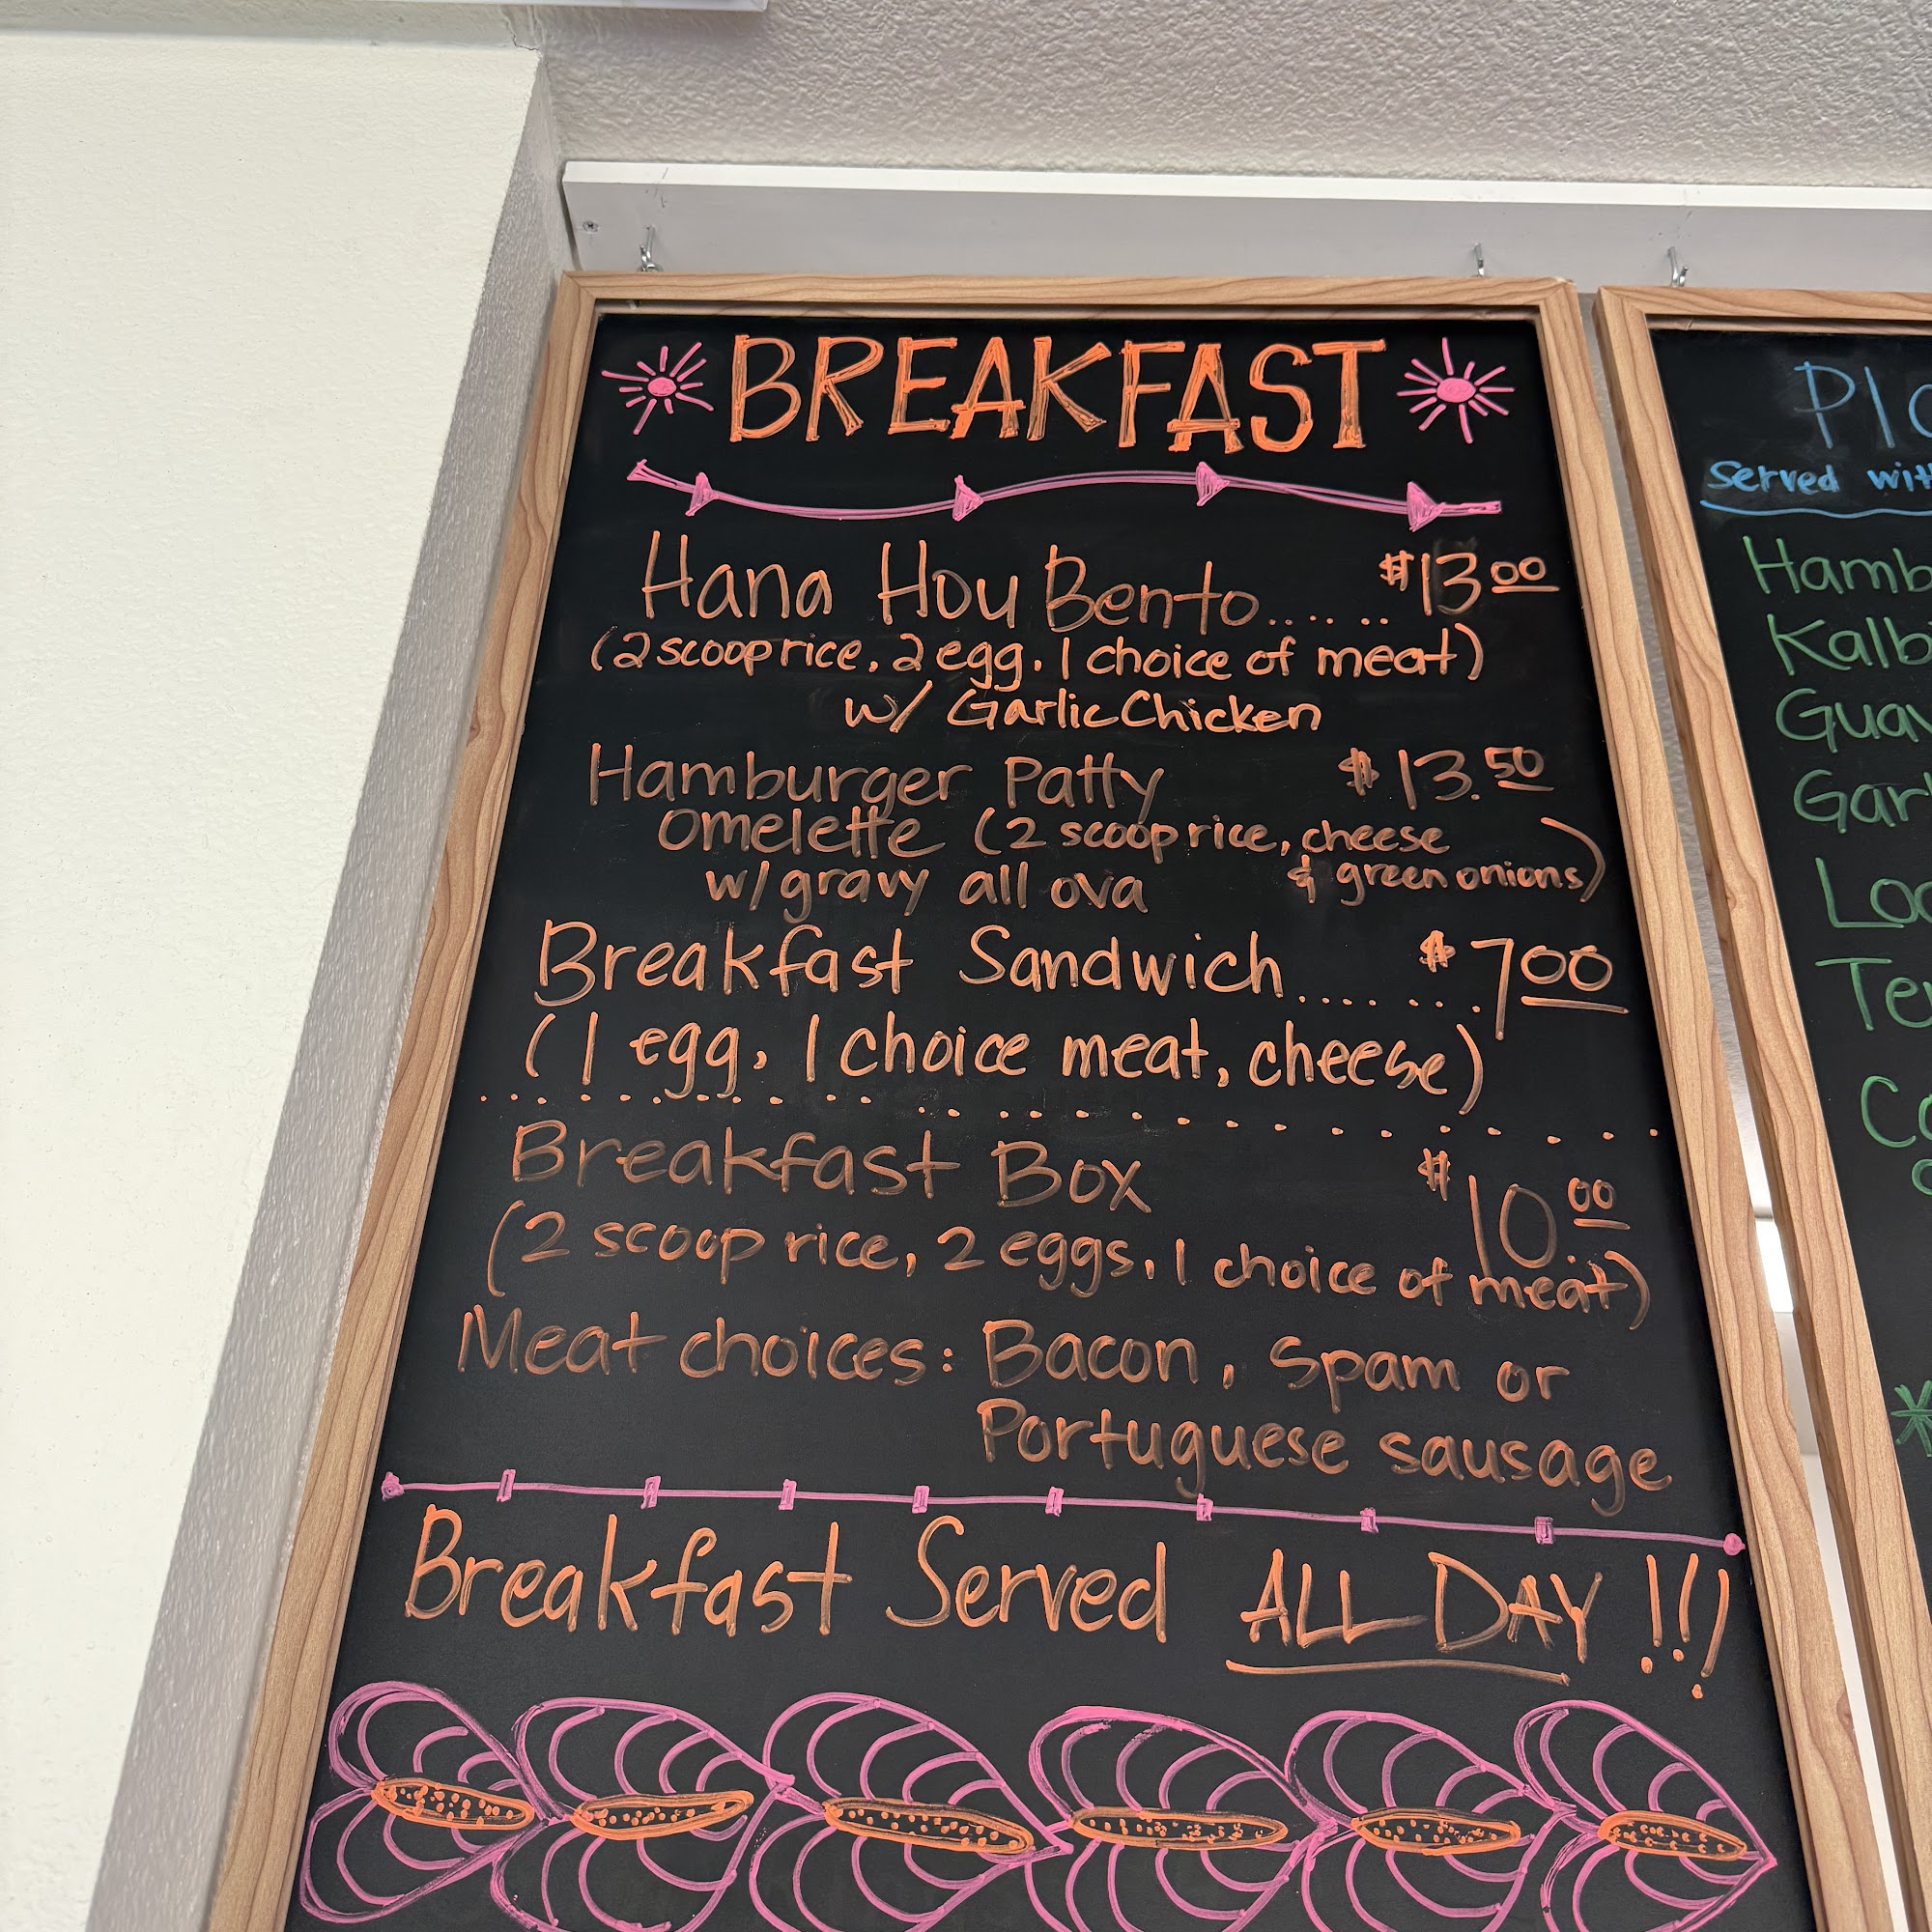 BREAKFAST
Hana Hou Bento...... $13.00
(2 scoop rice, 2 egg, 1 choice of meat)
w/ Garlic Chicken
Hamburger Patty $13.50
omelette (2 scoop rice, cheese
w/gravy all ova & green onions)
Breakfast Sandwich....... $7.00
(1 egg, 1 choice meat, cheese)
Breakfast Box $10.00
(2 scoop rice, 2 eggs, 1 choice of meat)
Meat choices: Bacon, Spam or
Portuguese sausage
Breakfast Served ALL DAY !!!
Served